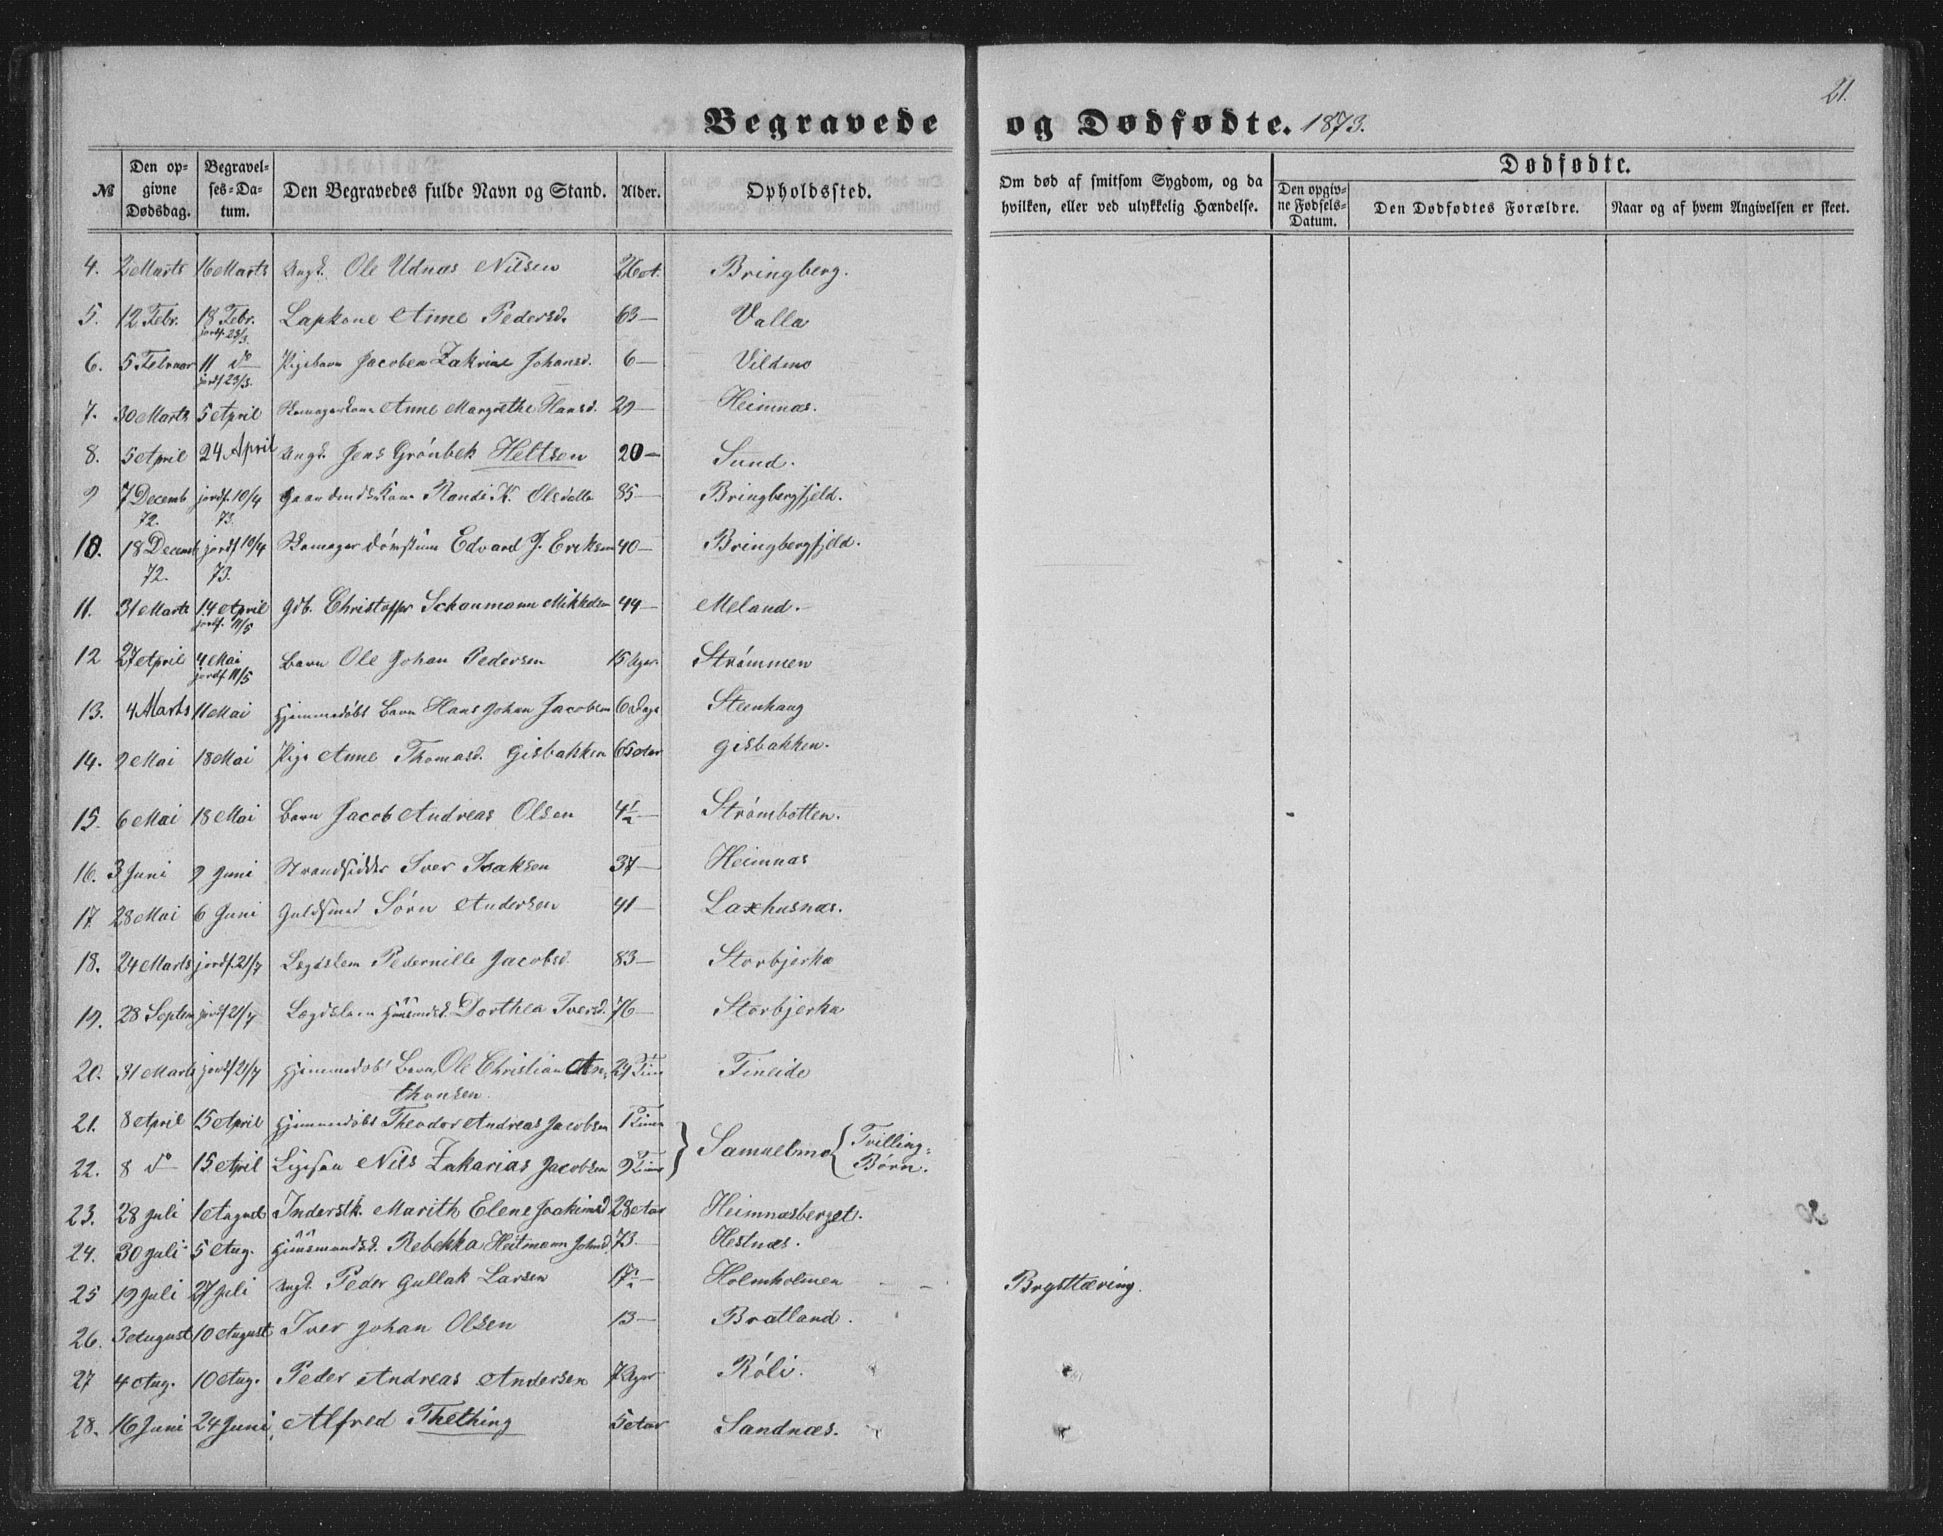 21.
Begravede og Dødfødte. 1873.
№ Den opgivne Dødsdag. Begravelses-Datum. Den Begravedes fulde Navn og Stand. Alder. Opholdssted. Om død af smitsom Sygdom, og da hvilken, eller ved ulykkelig Hændelse. Dødfødte. Den opgivne Fødsels-Datum. Den Dødfødtes Forældre. Naar og af hvem Angivelsen er skeet.
4. 2 Marts 16 Marts Ungk. Ole Udnæs Nilsen Bringberg.
5. 12 Febr. 18 Febr. jordf. 23/3. Lapkone Anne Pedersd. 63 — Valla
6. 5 Februar 11 do jordf 23/3. Pigebarn Jacobea Zakrine Johansd. 6 — Vildmo
7. 30 Marts 5 April Anne Margrethe Hansd. 29 — Heimnæs.
8. 5 April 24 April Ungk. Jens Grönbek Heltsen 20 — Sund.
9 7 Decemb 72. jordf. 10/4 73. Randi K. Olsdatter 85 — Bringbergfjeld.
10. 18 Decemb 72. jordf 10/4 73. Edvard J. Eriksen 40 — Bringbergfjeld.
11. 31 Marts 14 April jordf. 11/5 Gdb. Christoffer Schanmann Mikkelsen 44 — Meland.
12 27 April 4 Mai jordf 11/5 Barn Ole Johan Pedersen 15 Uger Strømmen
13. 4 Marts 11 Mai Hjemmedøbt Barn Hans Johan Jacobsen 6 Dage Steenhaug
14. 9 Mai 18 Mai Pige Anne Thomasd. Gisbakken 65 Aar Gisbakken.
15. 6 Mai 18 Mai Barn Jacob Andreas Olsen 4½ — Strømbotten.
16. 3 Juni 9 Juni Strandsidder Iver Isaksen 37 — Heimnæs
17. 28 Mai 6 Juni Guldsmed Sørn Andersen 41 — Laxhusnæs.
18. 24 Marts jordf. 21/7 Lægdslem Pedernille Jacobsd. 83 — Storbjerka
19. 28 Septem jordf 21/7 Lægdslem Huusmdsk. Dorthea Iversd. 76 — Storbjerka
20. 31 Marts jordf 21/7 Hjemmedøbt Barn Ole Christian An-
thonsen. 24 Tim Fineide
21. 8 April 15 April Hjemmedøbt Theodor Andreas Jacobsen 1 Time
22. 8 do 15 April Ligesaa Nils Zakarias Jacobsen 9 Time } Samuelmo { Tvilling-
Børn.
23. 28 Juli 1 August Inderstk. Marith Elene Joakimsd 28 Aar Heimnæsberget.
24. 30 Juli 5 Aug. Huusmandsk. Rebekka Heitmann Johnsd 73. Hestnæs.
25 19 Juli 27 Juli Ungk. Peder Gullak Larsen 17½ — Holmholmen Brysttæring.
26. 3 August 10 August Iver Johan Olsen 13 — Bratland.
27 4 Aug. 10 Aug. Peder Andreas Andersen 7 Uger Röli.
28. 16 Juni 24 Juni Alfred Thething 5 Aar Sandnæs.